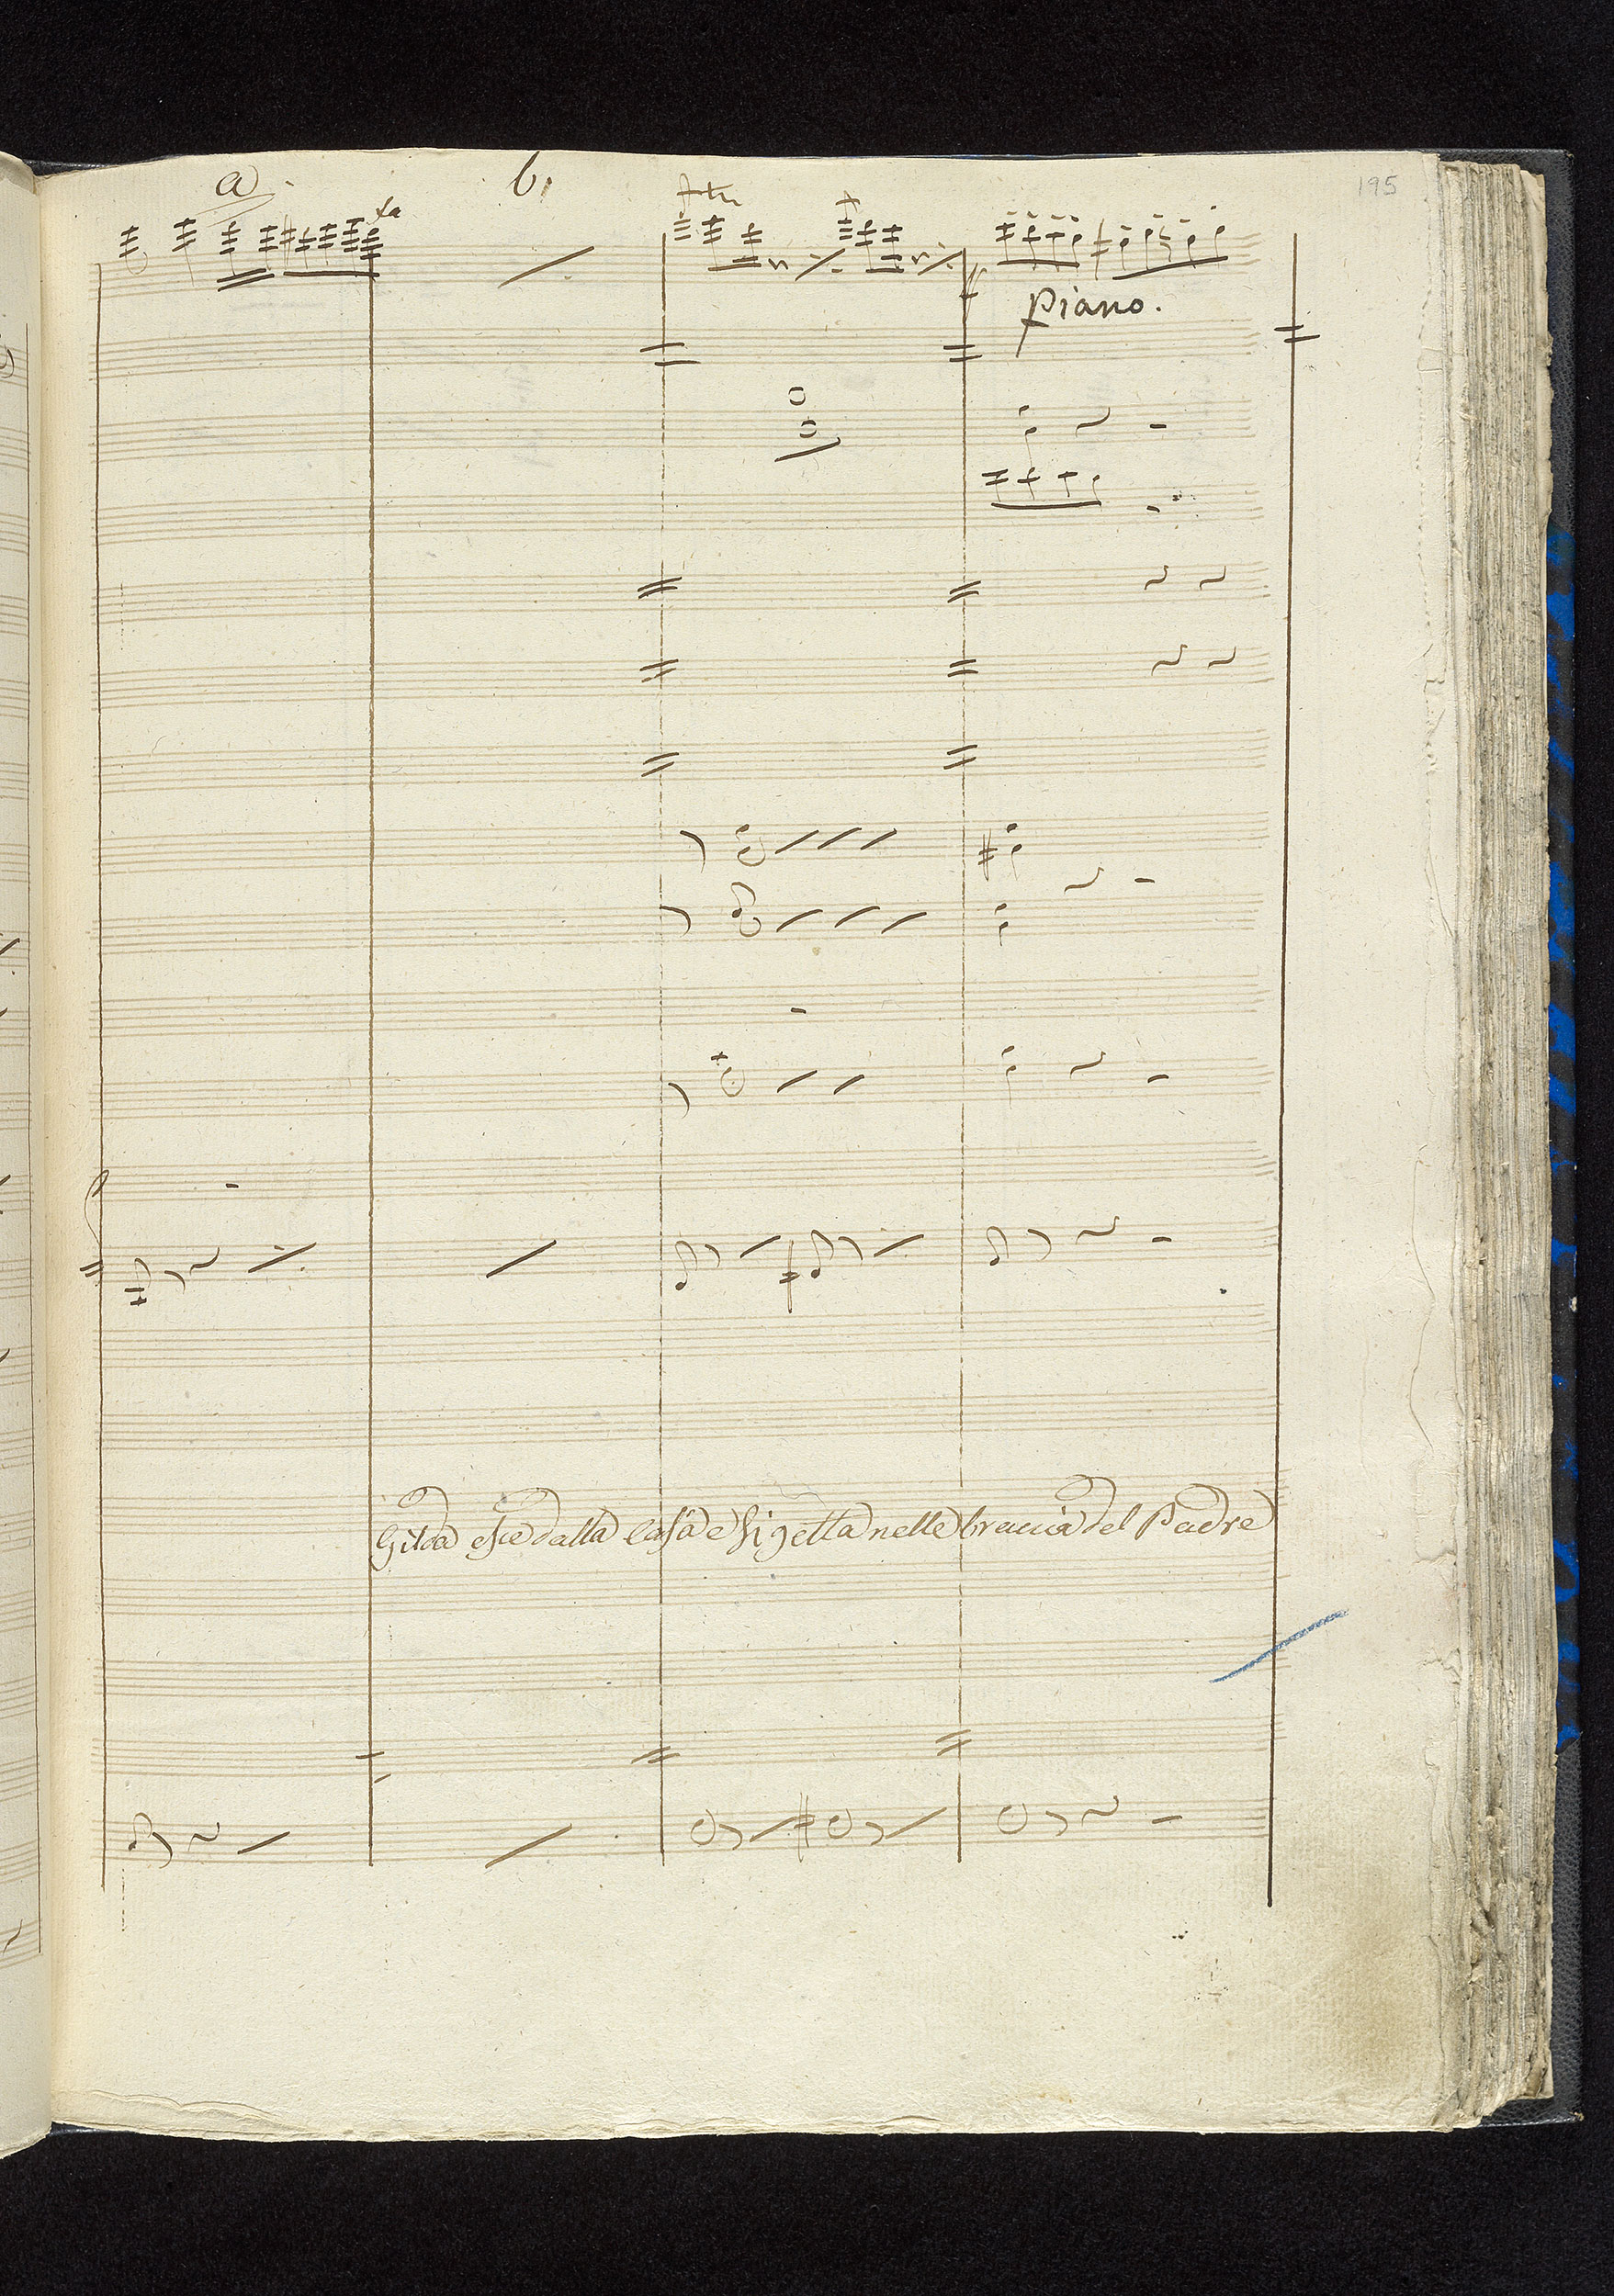 195
a.
b.
piano.
Gilda esce dalla Casa e si getta nelle braccia del Padre